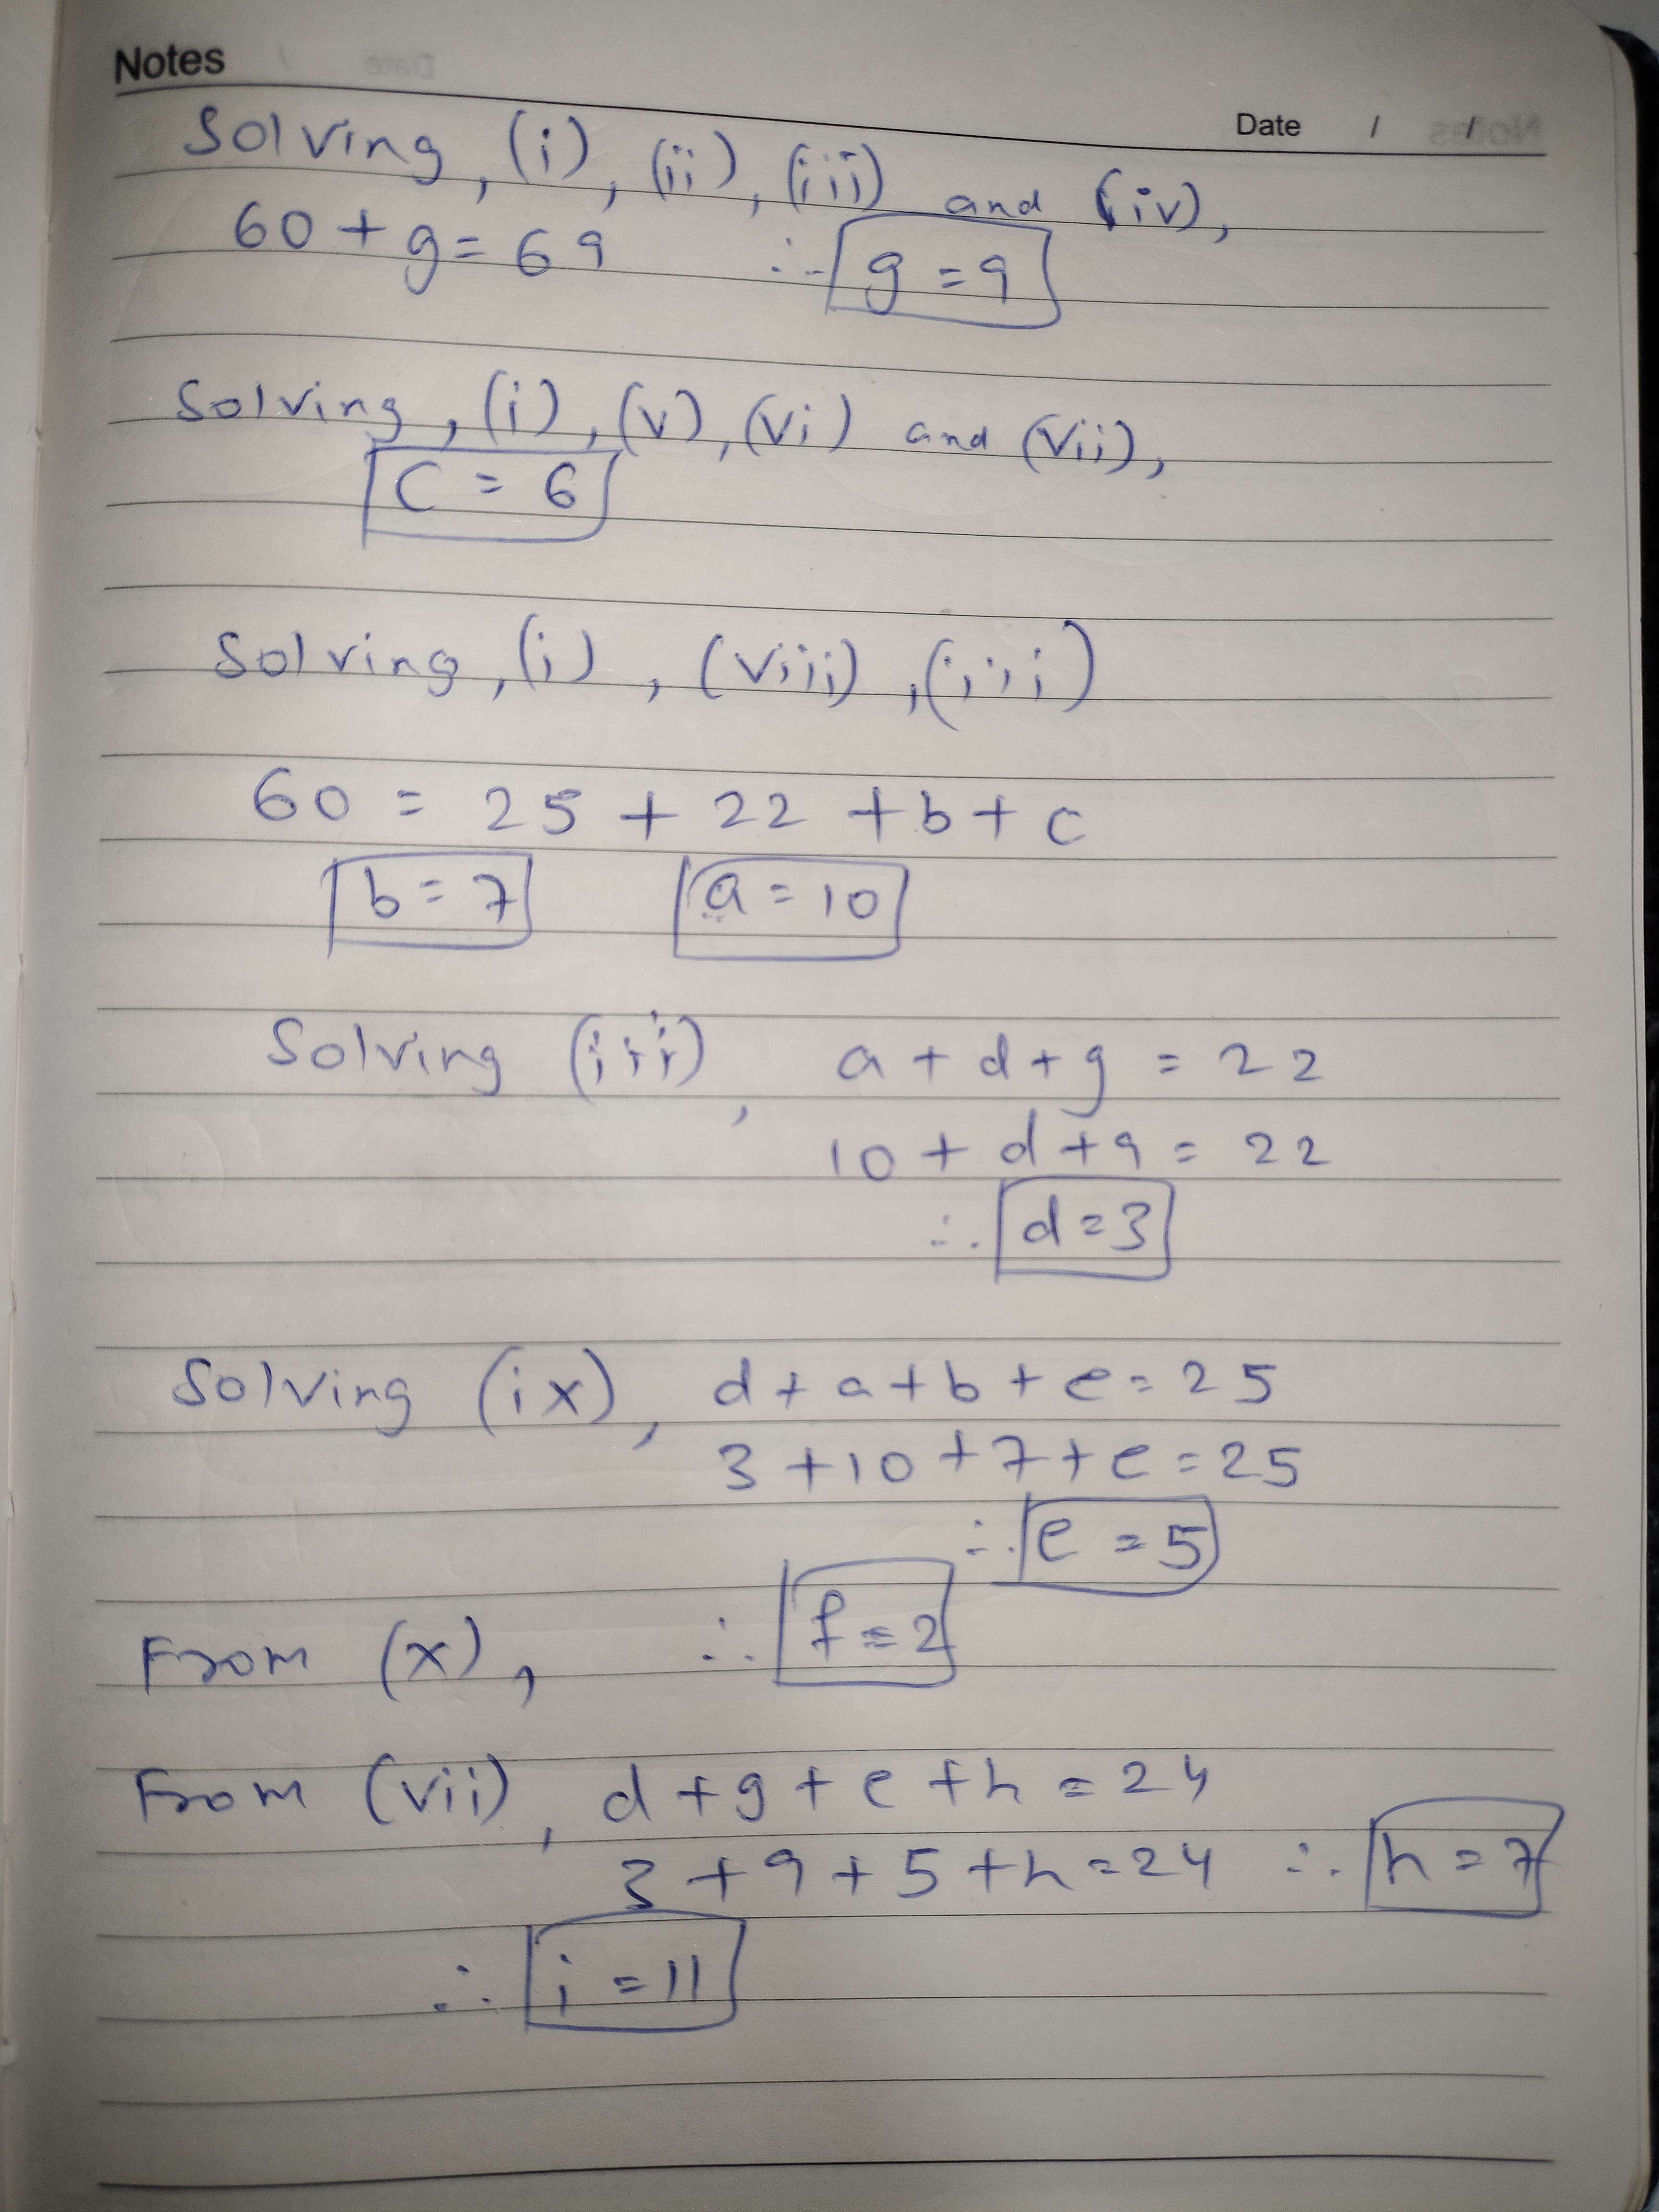 Notes
Date / /
Solving, (i), (ii), (iii) and (iv),
60 + g = 69 ∴ g = 9
Solving, (i), (v), (vi) and (vii),
C = 6
Solving, (i), (viii), (iii)
60 = 25 + 22 + b + c
b = 7 a = 10
Solving (iii), a + d + g = 22
10 + d + 9 = 22
∴ d = 3
Solving (ix), d + a + b + e = 25
3 + 10 + 7 + e = 25
∴ e = 5
From (x), ∴ f = 2
From (vii), d + g + e + h = 24
3 + 9 + 5 + h = 24 ∴ h = 7
∴ i = 11